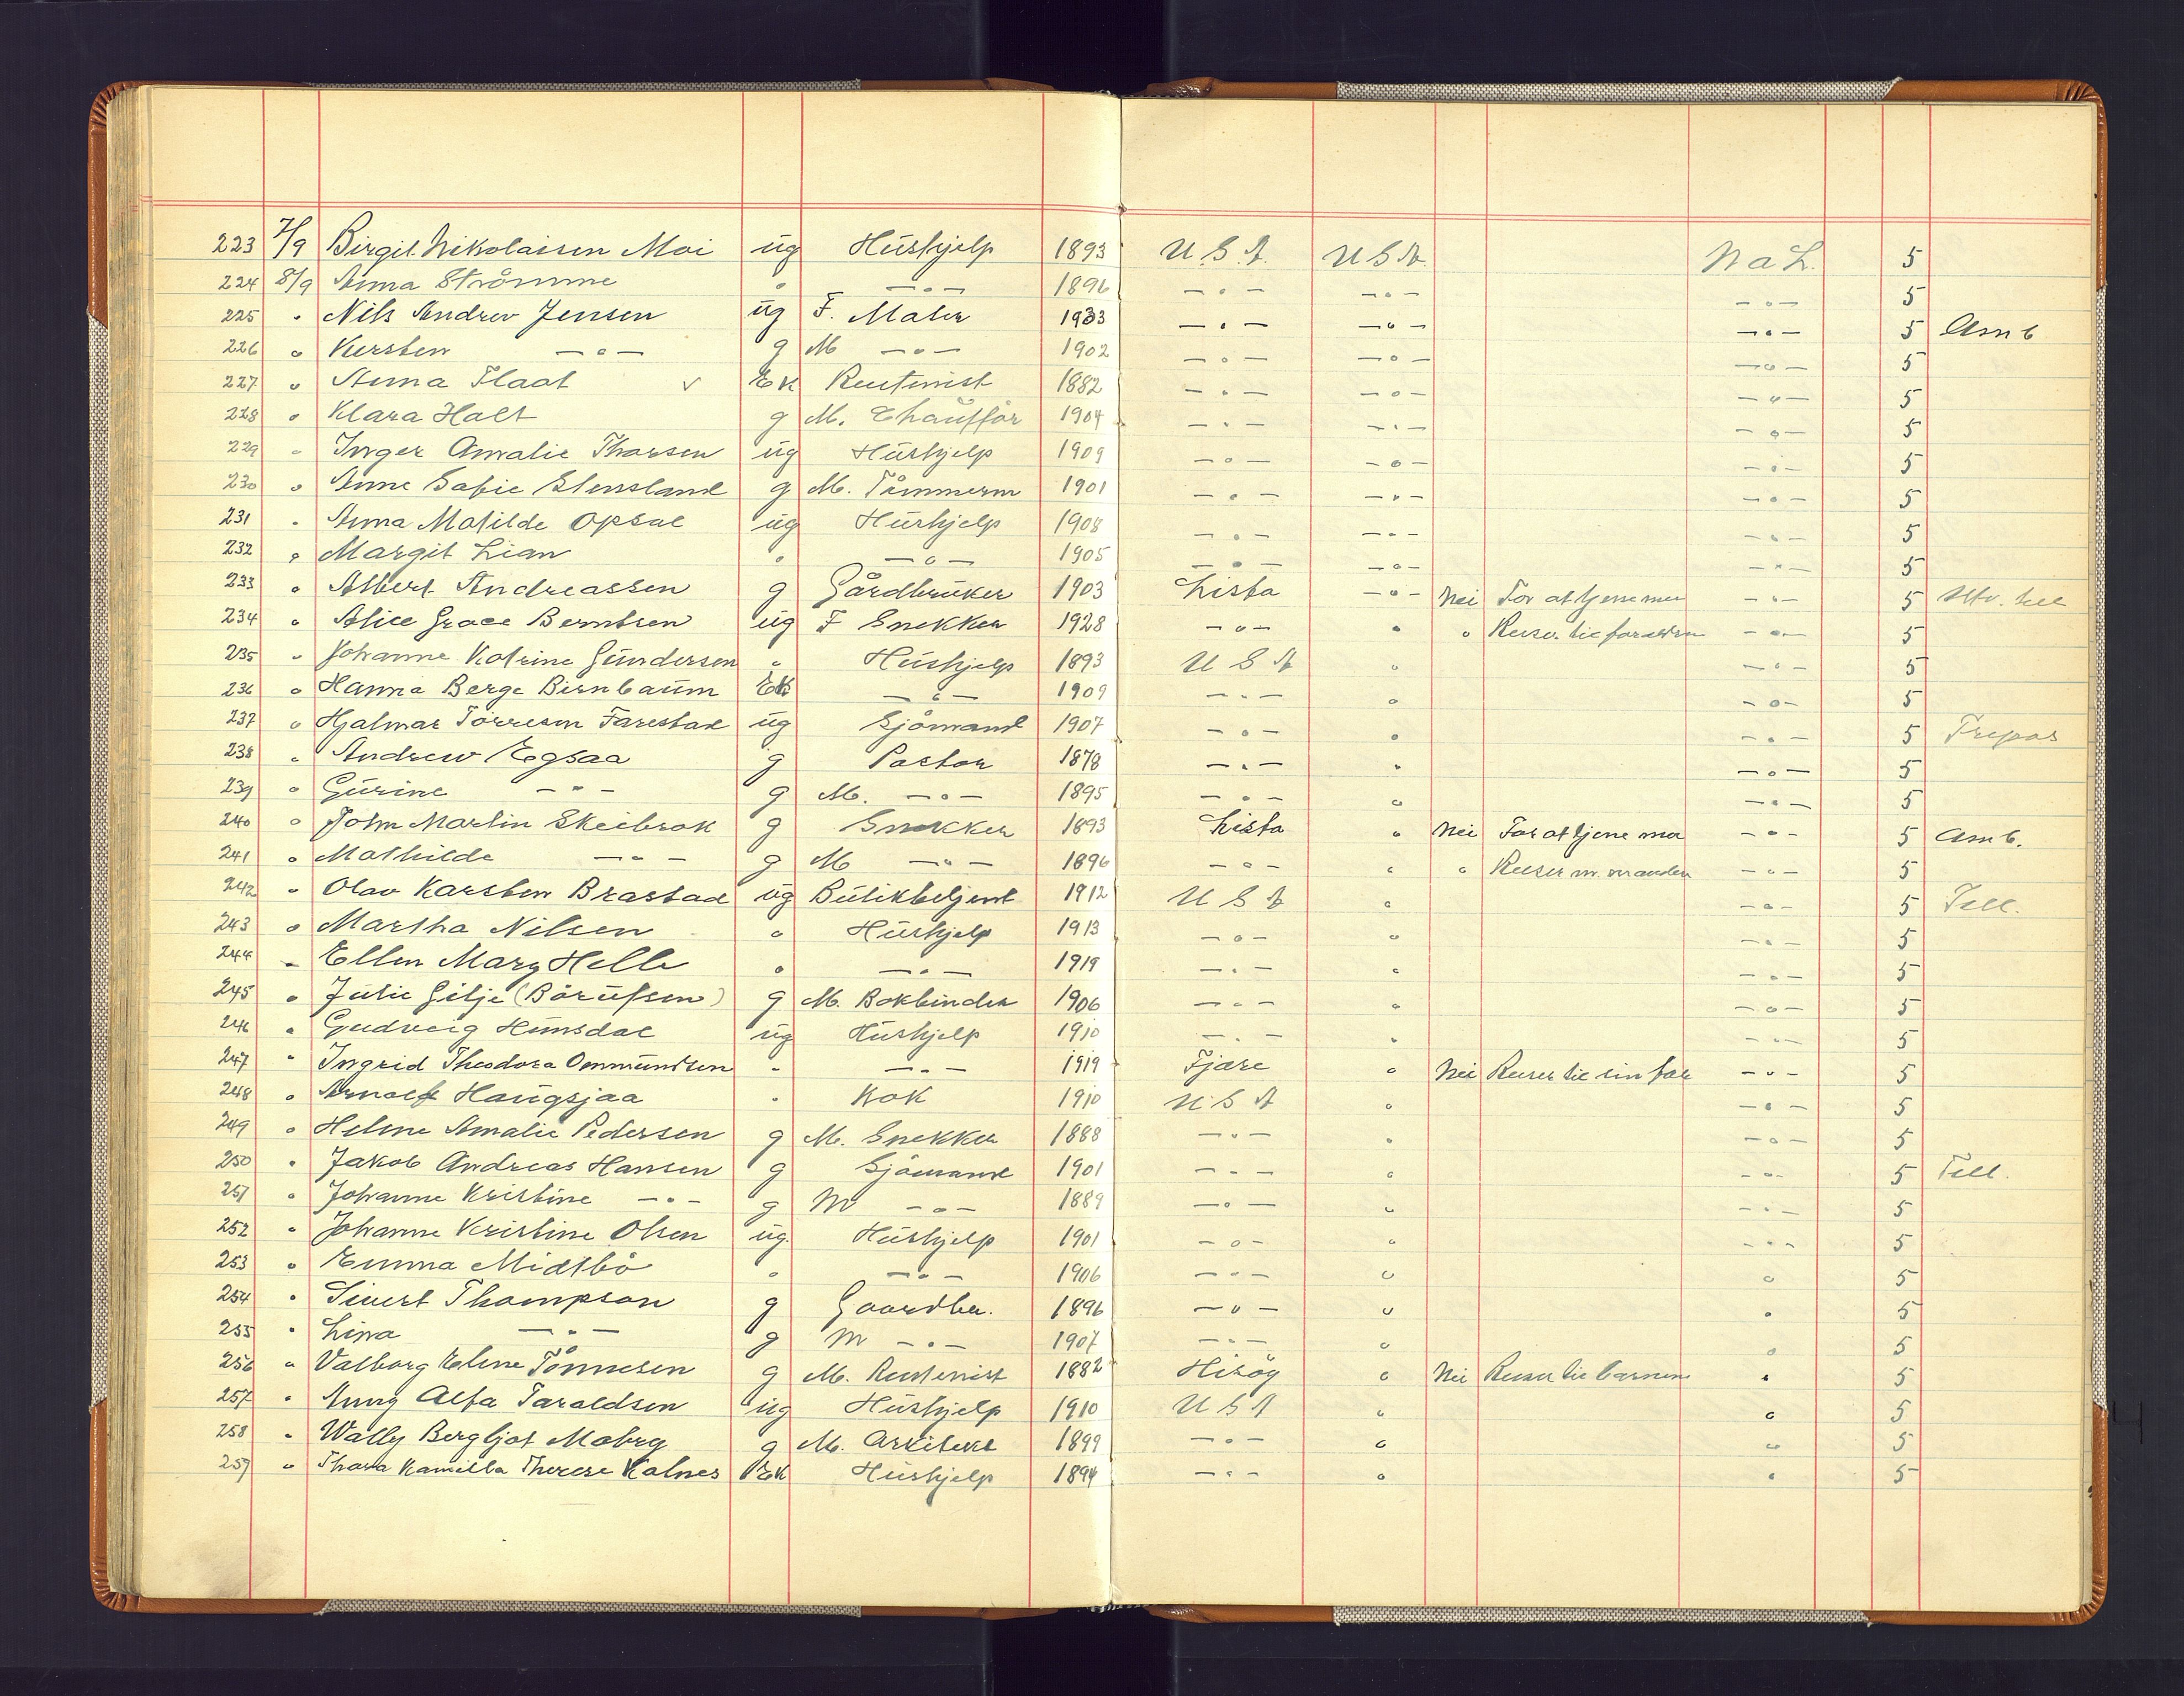 223 7/9 Birgit Nikolaisen Moi ug Hüshjelp 1893 U.S.A. U S A. N a L. 5
224 8/9 Anna Strömme " —"— 1896 —"— —"— —"— 5
225 " Nils Andrew Jensen ug F. Maler 1933 —"— —"— —"— 5 Amb
226 " Kersten —"— g M —"— 1902 —"— —"— —"— 5
227 " Anna Flaat v Ek Rentenist 1882 —"— —"— —"— 5
228 " Klara Holt g M. Chäufför 1904 —"— —"— —"— 5
229 " Inger Amalie Thorsen ug Hüshjelp 1909 —"— —"— —"— 5
230 " Anne Sofie Stensland g M. Tömmerm 1901 —"— —"— —"— 5
231 " Anna Matilde Opsal ug Hüshjelp 1908 —"— —"— —"— 5
232 " Margit Lian " —"— 1905 —"— —"— —"— 5
233 " Albert Andreassen g Gårdbrüker 1903 Lista —"— Nei For at tjene mer —"— 5
234 " Alice Grace Berntsen ug F Snekker 1928 —"— " " Reiser til foreldren —"— 5
235 " Johanne Katrine Gündersen " Hüshjelp 1893 U S A " —"— 5
236 " Hanna Berge Birnbaüm Ek —"— 1909 —"— " —"— 5
237 " Hjalmar Törresen Farestad ug Sjömand 1907 —"— " —"— 5 Prepos
238 " Andrew Egsaa g Pastor 1878 —"— " —"— 5
239 " Gürine —"— g M. —"— 1895 —"— " —"— 5
240 " John Martin Skeibrok g Snekker 1893 Lista " Nei For at tjene mer —"— 5 Amb.
241 " Mathilde —"— g M —"— 1896 —"— " " Reiser m. manden —"— 5
242 " Olav Karsten Brastad ug Bütikbetjent 1912 U S A " —"— 5 Tell.
243 " Martha Nilsen " Hüshjelp 1913 —"— " —"— 5
244 " Ellen Mary Helle " —"— 1919 —"— " —"— 5
245 " Jülie Gilje (Börüfsen) g M. Bokbinder 1906 —"— " —"— 5
246 " Gudveig Hünsdal ug Hüshjelp 1910 —"— " —"— 5
247 " Ingrid Theodora Ommündsen " —"— 1919 Fjære " Nei Reiser til sin far —"— 5
248 " Arnolf Haügsjaa " Kok 1910 U S A " —"— 5
249 " Helene Amalie Pedersen g M. Snekker 1888 —"— " —"— 5
250 " Jakob Andreas Hansen g Sjömand 1901 —"— " —"— 5 Tell.
251 " Johanne Kristine —"— g M —"— 1889 —"— " —"— 5
252 " Johanne Kristine Olsen ug. Hüshjelp 1901 —"— " —"— 5
253 " Emma Midtbö " —"— 1906 —"— " " 5
254 " Sivert Thompson g Gaardbr. 1896 —"— " " 5
255 " Lina —"— g M —"— 1907 —"— " " 5
256 " Valborg Elene Tönnesen g M. Rentenist 1882 Hisöy " Nei Reiser til barnene " 5
257 " Aung Alfa Taraldsen ug Hüshjelp 1910 U S A " " 5
258 " Wally Bergljot Moberg g M. Arkitekt 1899 —"— " " 5
259 " Thora Kamilla Therese Kalnes Ek Hüshjelp 1894 —"— " " 5